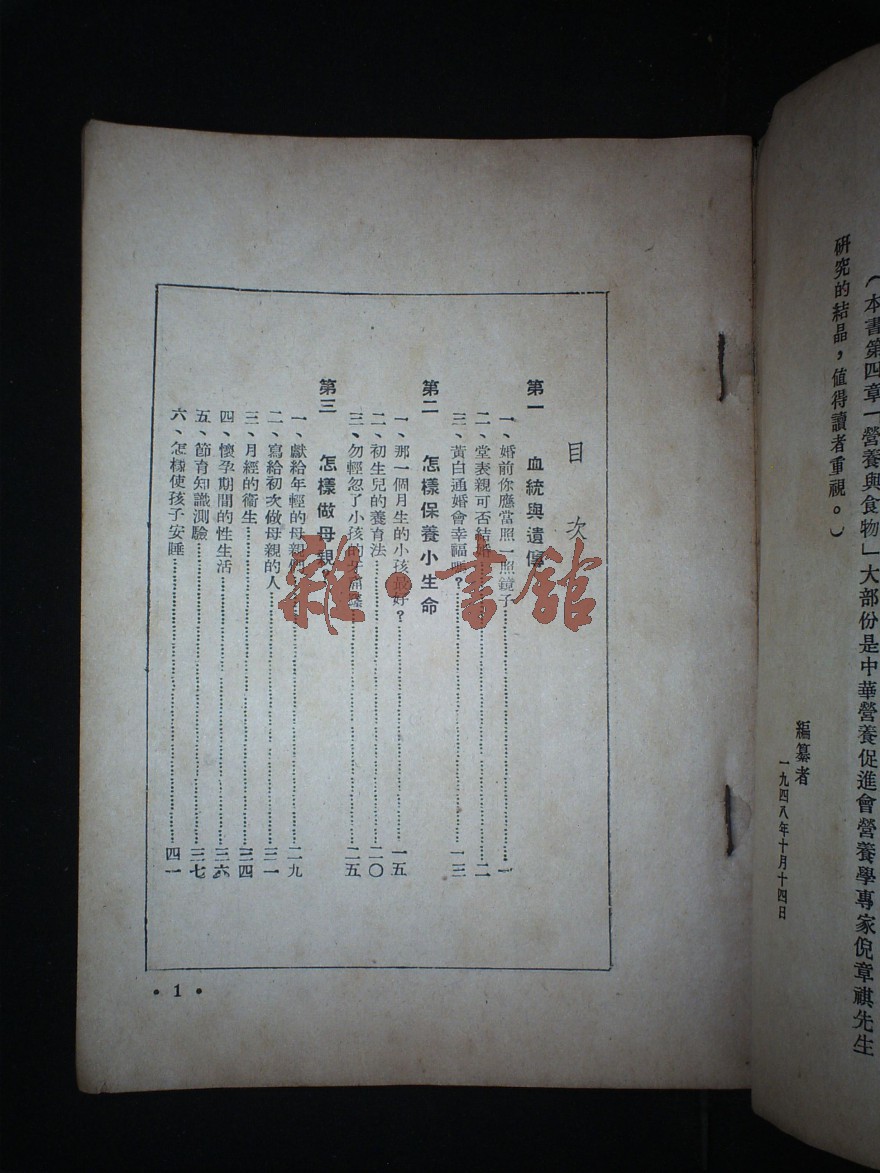 （本書第四章「營養與食物」大部份是中華營養促進會營養學專家倪章祺先生
研究的結晶，值得讀者重視。）
編纂者
一九四八年十月十四日
目次
第一　血統與遺傳
一、婚前你應當照一照鏡子……一
二、堂表親可否結婚……二
三、黃白通婚會幸福嗎？……一三
第二　怎樣保養小生命
一、那一個月生的小孩最好？……一五
二、初生兒的養育法……二〇
三、勿輕忽了小孩的……二五
第三　怎樣做母親？
一、獻給年輕的母親們……二九
二、寫給初次做母親的人……三一
三、月經的衞生……三四
四、懷孕期間的性生活……三六
五、節育知識測驗……三七
六、怎樣使孩子安睡……四一
• 1 •
雜·書館